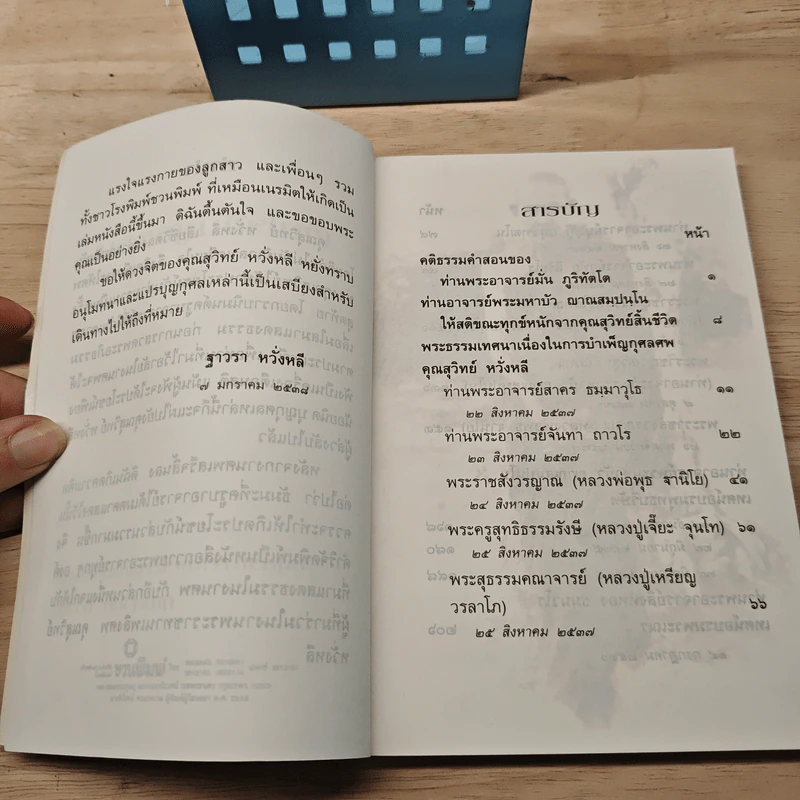 แรงใจแรงกายของลูกสาว และเพื่อนๆ รวม
ทั้งชาวโรงพิมพ์ชวนพิมพ์ ที่เหมือนเนรมิตให้เกิดเป็น
เล่มหนังสือนี้ขึ้นมา ดิฉันตื้นตันใจ และขอขอบพระ
คุณเป็นอย่างยิ่ง
ขอให้ดวงจิตของคุณสุวิทย์ หวั่งหลี หยั่งทราบ
อนุโมทนาและแปรบุญกุศลเหล่านี้เป็นเสบียงสำหรับ
เดินทางไปให้ถึงที่หมาย
ฐาวรา หวั่งหลี
๗ มกราคม ๒๕๓๘
สารบัญ
หน้า
คติธรรมคำสอนของ
ท่านพระอาจารย์มั่น ภูริทัตโต ๑
ท่านอาจารย์พระมหาบัว ญาณสมฺปนฺโน
ให้สติขณะทุกข์หนักจากคุณสุวิทย์สิ้นชีวิต ๘
พระธรรมเทศนาเนื่องในการบำเพ็ญกุศลศพ
คุณสุวิทย์ หวั่งหลี
ท่านพระอาจารย์สาคร ธมฺมาวุโธ ๑๑
๒๒ สิงหาคม ๒๕๓๗
ท่านพระอาจารย์จันทา ถาวโร ๒๒
๒๓ สิงหาคม ๒๕๓๗
พระราชสังวรญาณ (หลวงพ่อพุธ ฐานิโย) ๔๑
๒๔ สิงหาคม ๒๕๓๗
พระครูสุทธิธรรมรังษี (หลวงปู่เจี๊ยะ จุนโท) ๖๑
๒๕ สิงหาคม ๒๕๓๗
พระสุธรรมคณาจารย์ (หลวงปู่เหรียญ
วรลาโภ) ๖๖
๒๕ สิงหาคม ๒๕๓๗